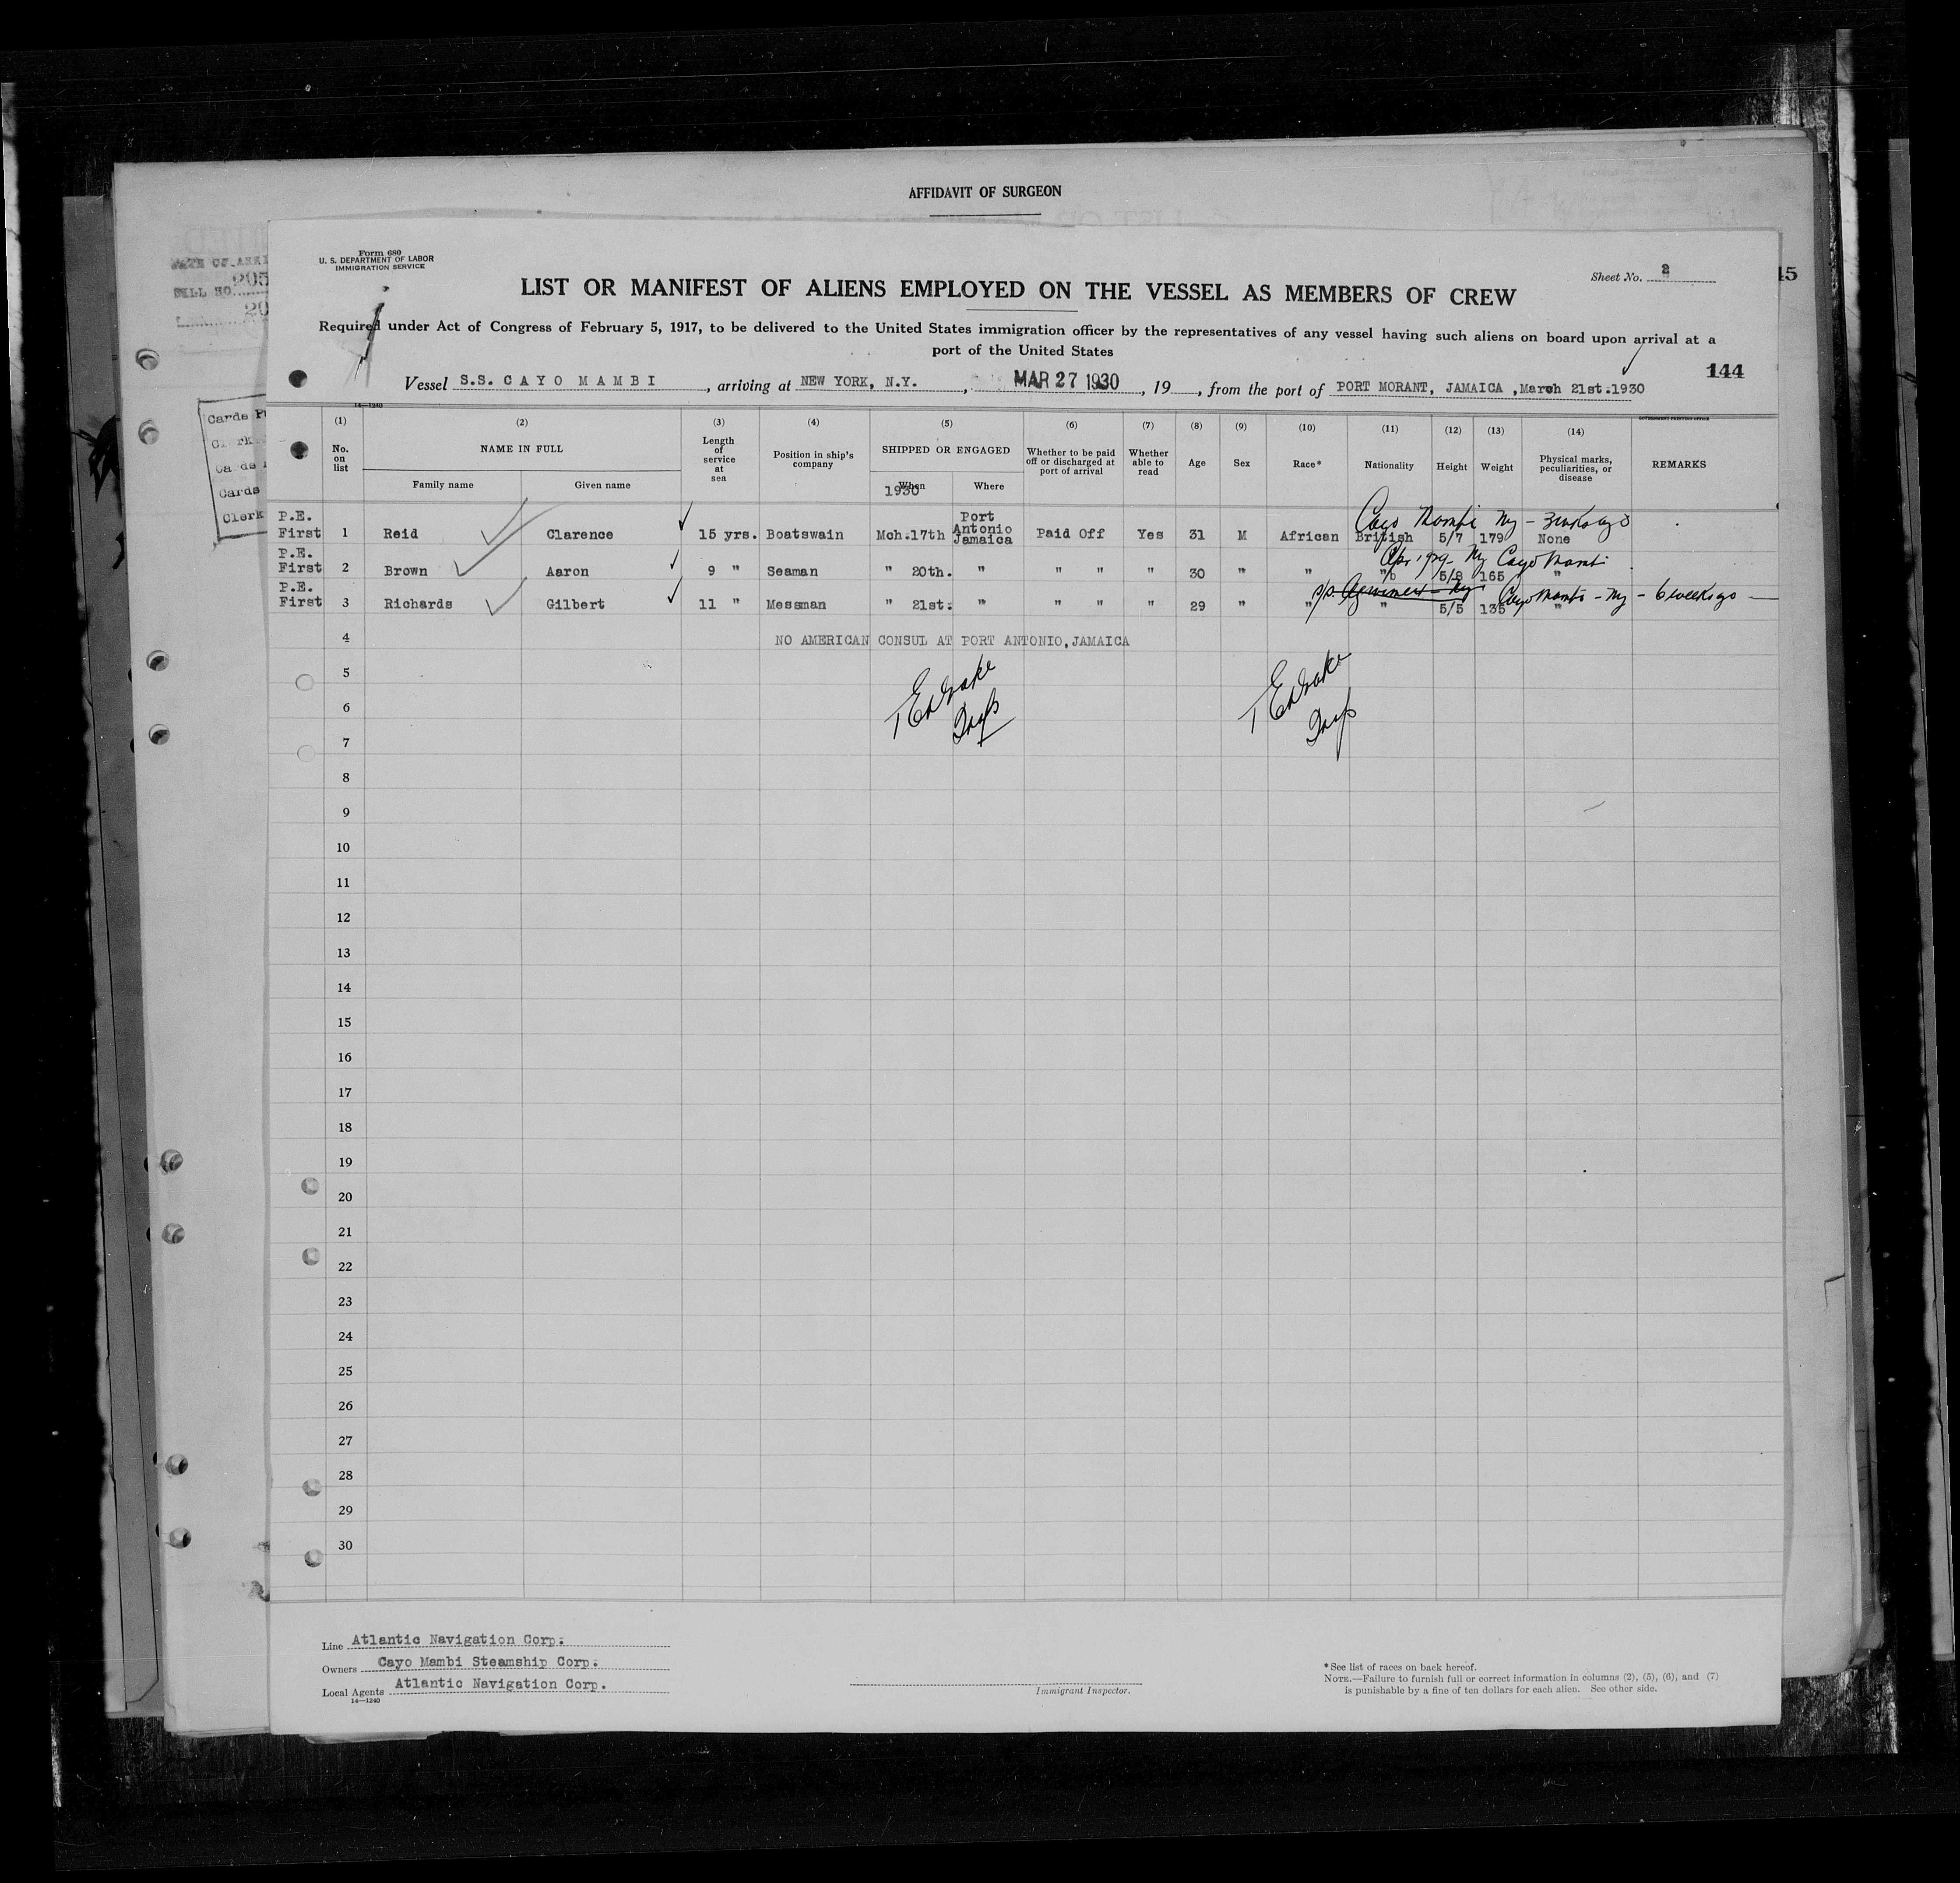 AFFIDAVIT OF SURGEON
Form 680
U. S. DEPARTMENT OF LABOR
IMMIGRATION SERVICE
Sheet No. 2
15
LIST OR MANIFEST OF ALIENS EMPLOYED ON THE VESSEL AS MEMBERS OF CREW
Required under Act of Congress of February 5, 1917, to be delivered to the United States immigration officer by the representatives of any vessel having such aliens on board upon arrival at a
port of the United States
144
Vessel S.S. CAYO MAMBI, arriving at NEW YORK, N.Y., MAR 27 1930, 19, from the port of PORT MORANT, JAMAICA, March 21st.1930
14—1240
GOVERNMENT PRINTING OFFICE
(1) (2) (3) (4) (5) (6) (7) (8) (9) (10) (11) (12) (13) (14)
No. on list NAME IN FULL Length of service at sea Position in ship's company SHIPPED OR ENGAGED Whether to be paid off or discharged at port of arrival Whether able to read Age Sex Race* Nationality Height Weight Physical marks, peculiarities, or disease REMARKS
Family name Given name When 1930 Where
Cayo Mambi Ny - 3 wks ago
P.E. First 1 Reid Clarence 15 yrs. Boatswain Mch.17th Port Antonio Jamaica Paid Off Yes 31 M African British 5/7 179 None
Apr 1929 Ny Cayo Mambi
P.E. First 2 Brown Aaron 9 " Seaman " 20th. " " " " 30 " " " 5/8 165 "
Cayo Mambi - Ny - 6 weeks ago
P.E. First 3 Richards Gilbert 11 " Messman " 21st. " " " " 29 " " " 5/5 135 "
4 NO AMERICAN CONSUL AT PORT ANTONIO, JAMAICA
5
6
7
8
9
10
11
12
13
14
15
16
17
18
19
20
21
22
23
24
25
26
27
28
29
30
Line Atlantic Navigation Corp.
Owners Cayo Mambi Steamship Corp.
Local Agents Atlantic Navigation Corp.
14—1240
Immigrant Inspector.
*See list of races on back hereof.
NOTE.—Failure to furnish full or correct information in columns (2), (5), (6), and (7)
is punishable by a fine of ten dollars for each alien. See other side.